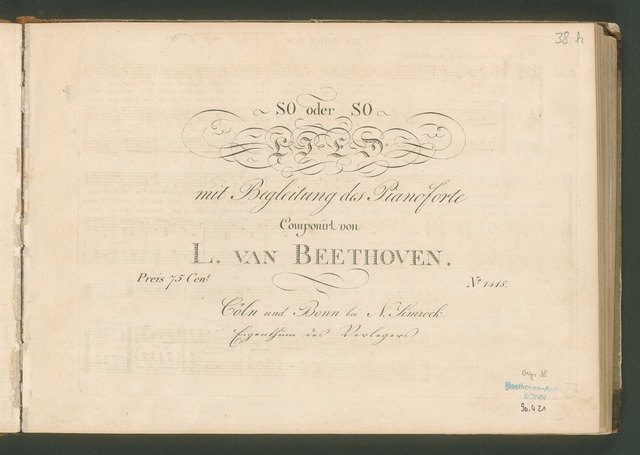 38 h
~ SO oder SO ~
LIED
mit Begleitung des Pianoforte
Componirt von
L. VAN BEETHOVEN.
Preis 75 Cent
No 1418.
Cöln und Bonn bei N. Simrock
Eigenthum des Verlegers
Beethoven-
BONN
So. 421